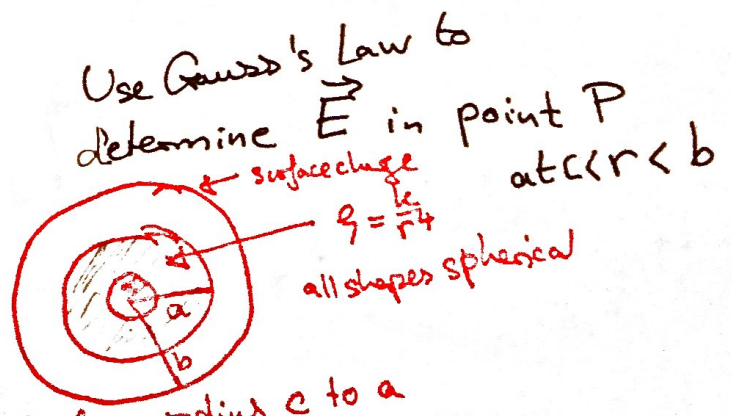 Use Gauss's Law to
determine E in point P
at c<r<b
surface charge
ρ = k/r⁴
all shapes spherical
a
b
radius c to a